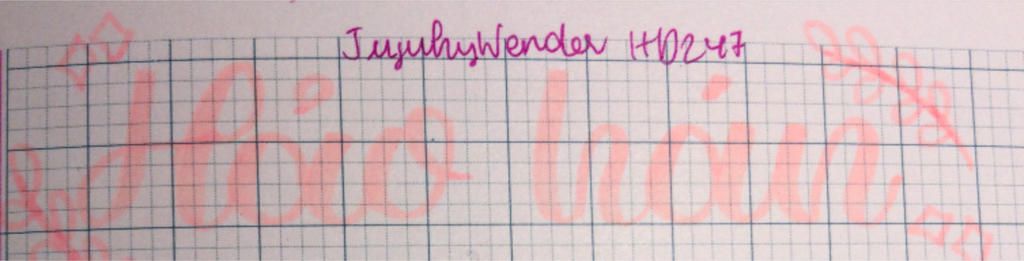 JuyuhyWender HD247
Hảo hán